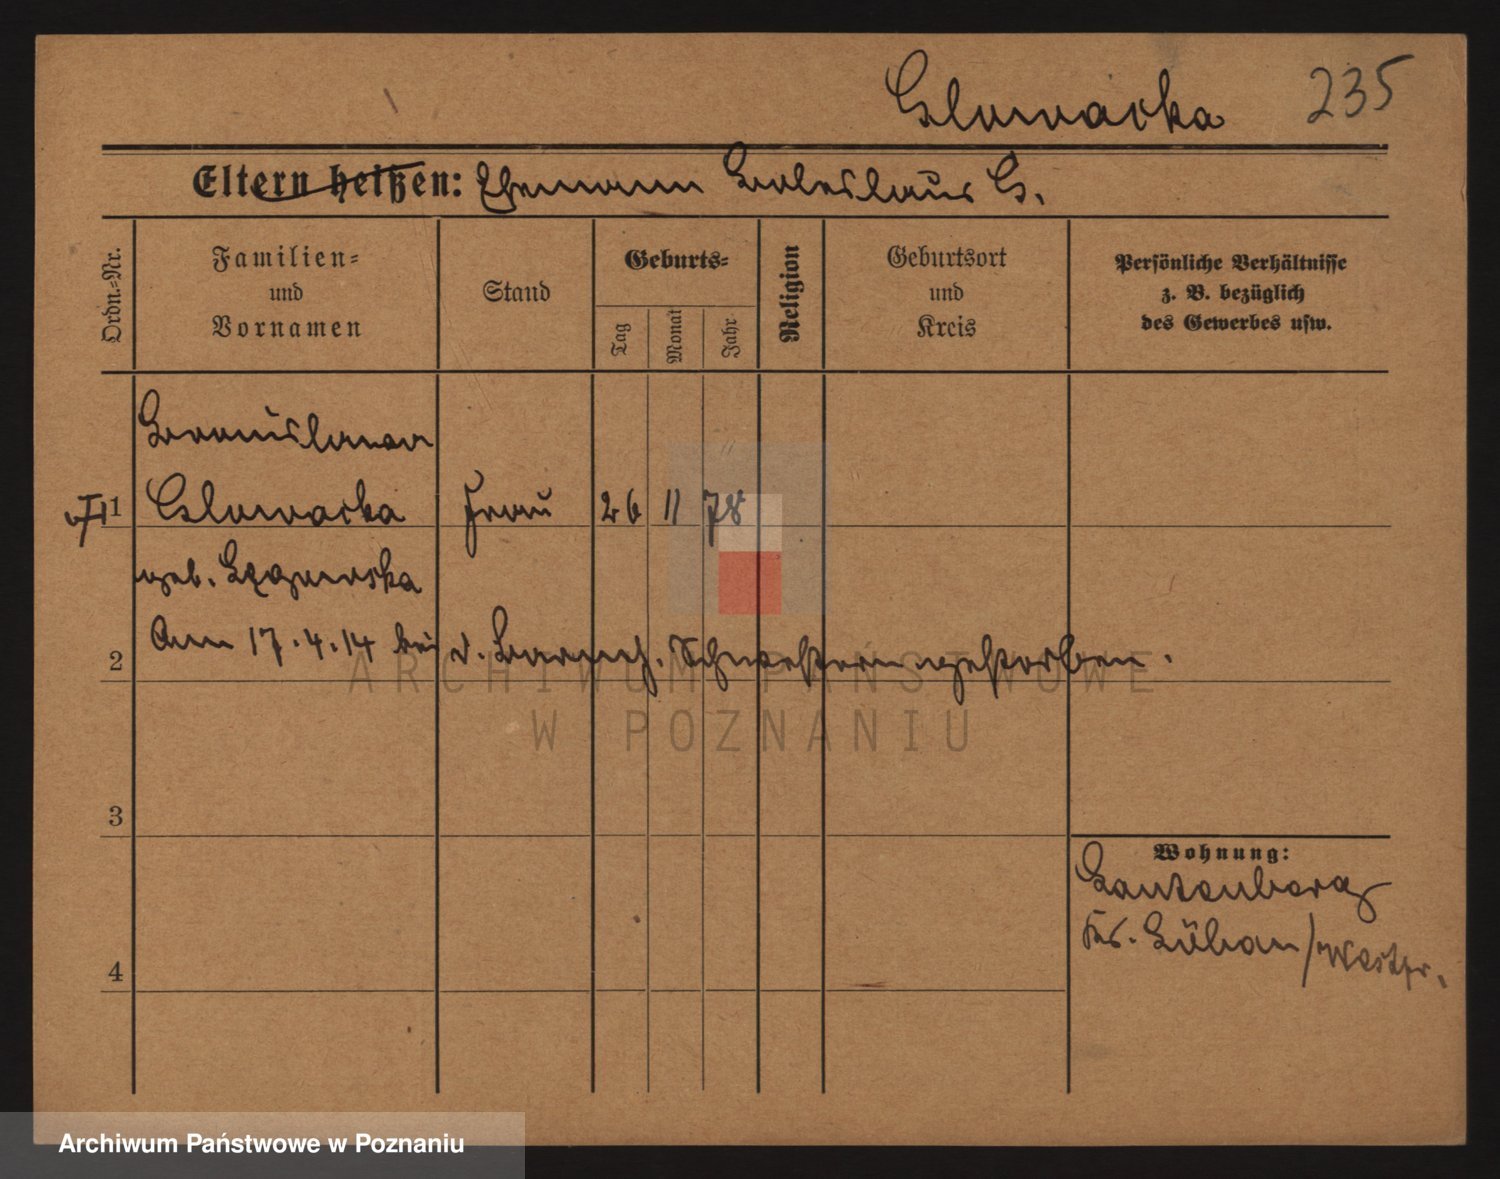 Glowacka 235
Eltern heißen: Ehemann Boleslaus G.
Ordn.-Nr.
Familien-
und
Vornamen
Stand
Geburts-
Tag
Monat
Jahr
Religion
Geburtsort
und
Kreis
Persönliche Verhältnisse
z. B. bezüglich
des Gewerbes usw.
Bronislawa
1 Glowacka Frau 26 11 78
geb.
Am 17.4.14 bei d. Barmh. Schwestern gestorben.
2
3
4
Wohnung:
Krs. Löbau/Westpr.
ARCHIWUM PAŃSTWOWE
W POZNANIU
Archiwum Państwowe w Poznaniu